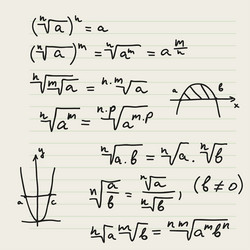 (ⁿ√a)ⁿ = a
(ⁿ√a)ᵐ = ⁿ√aᵐ = a^(m/n)
ⁿ√ᵐ√a = ⁿ·ᵐ√a
a b x
ⁿ√aᵐ = ⁿ·ᵖ√aᵐ·ᵖ
ⁿ√a.b = ⁿ√a . ⁿ√b
y
a c
ⁿ√(a/b) = ⁿ√a/ⁿ√b , (b ≠ 0)
ⁿ√a ᵐ√b = ⁿᵐ√aᵐbⁿ